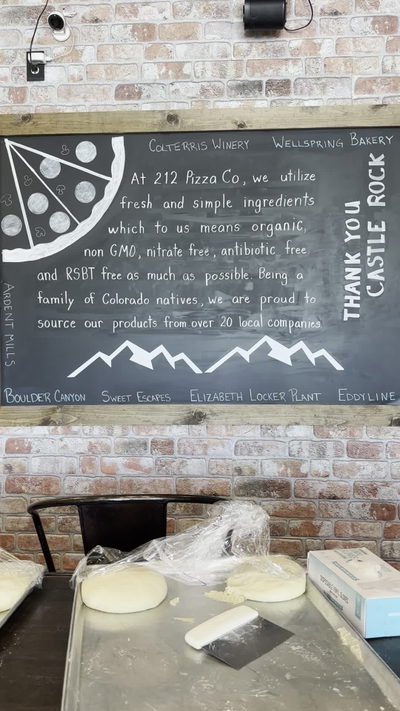 COLTERRIS WINERY
WELLSPRING BAKERY
At 212 Pizza Co, we utilize
fresh and simple ingredients
which to us means organic,
non GMO, nitrate free, antibiotic free
and RSBT free as much as possible. Being a
family of Colorado natives, we are proud to
source our products from over 20 local companies.
THANK YOU
CASTLE ROCK
ARDENT MILLS
BOULDER CANYON
SWEET ESCAPES
ELIZABETH LOCKER PLANT
EDDYLINE